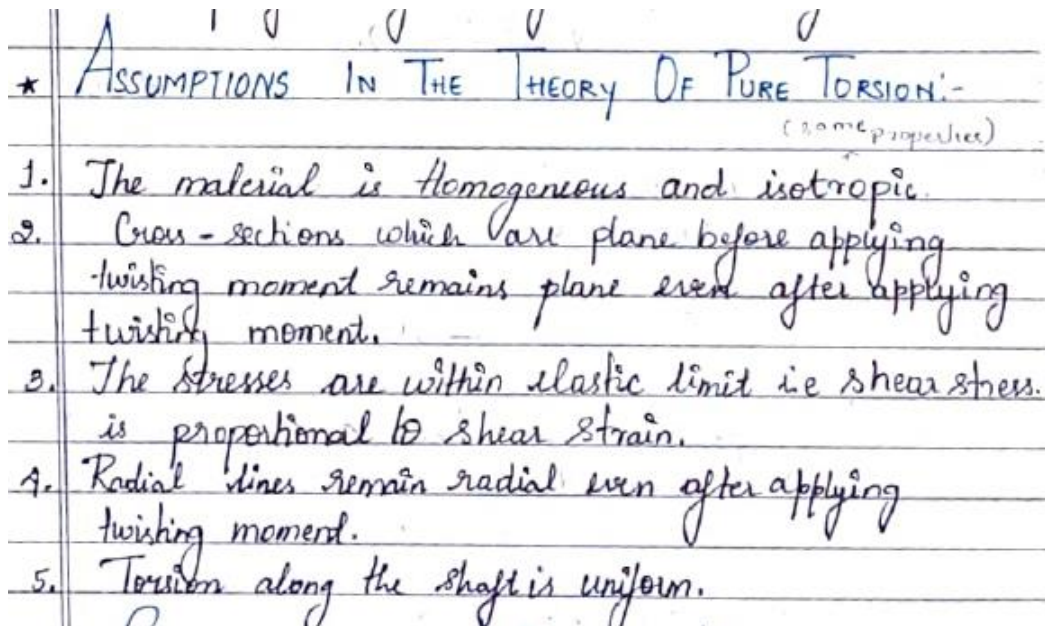 * ASSUMPTIONS IN THE THEORY OF PURE TORSION:-
(same properties)
1. The material is Homogeneous and isotropic.
2. Cross-sections which are plane before applying
twisting moment remains plane even after applying
twisting moment.
3. The stresses are within elastic limit i.e shear stress.
is proportional to shear strain.
4. Radial lines remain radial even after applying
twisting moment.
5. Torsion along the shaft is uniform.